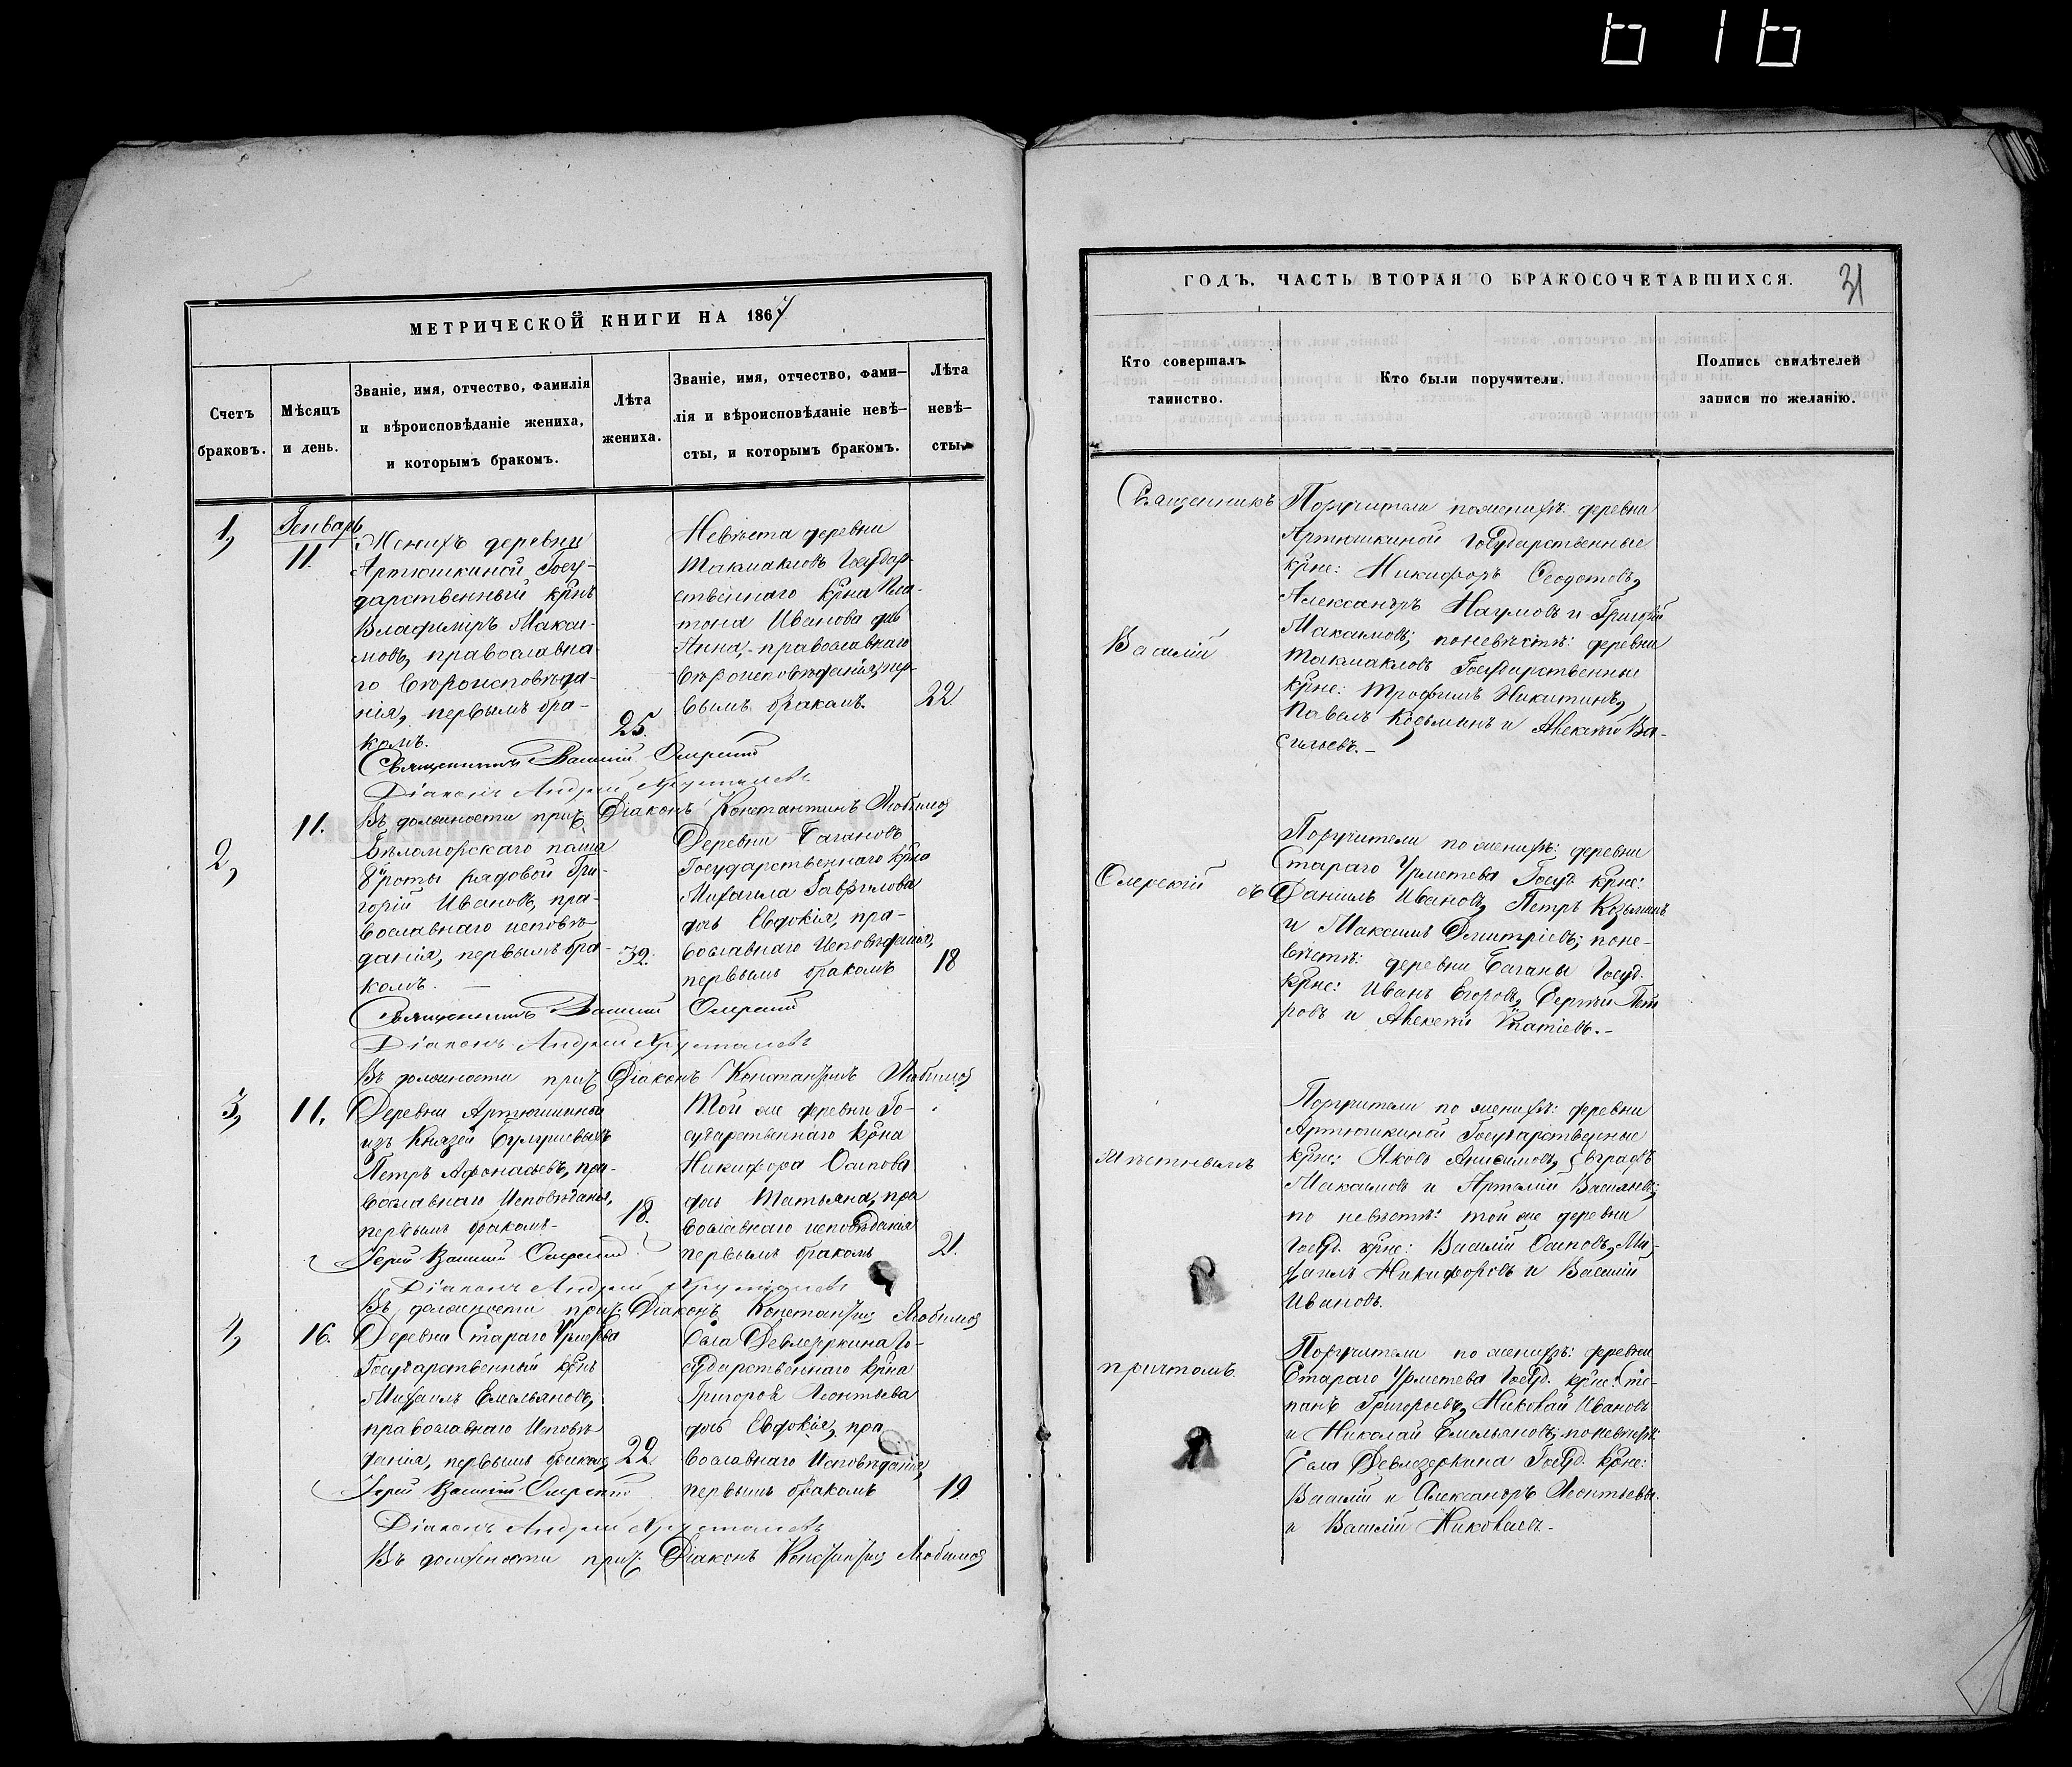 МЕТРИЧЕСКОЙ КНИГИ НА 1867
Счетъ браковъ.
Мѣсяцъ и день.
Званіе, имя, отчество, фамилія
и вѣроисповѣданіе жениха,
и которымъ бракомъ.
Лѣта жениха.
Званіе, имя, отчество, фами-
лія и вѣроисповѣданіе невѣ-
сты, и которымъ бракомъ.
Лѣта невѣ-
сты.
1,
Генварь
11.
Женихъ деревни
Артюшкиной Госу-
дарственный крнъ
Владиміръ Макси-
мовъ, православна-
го вѣроисповѣда-
нія, первымъ бра-
комъ.
25.
Невѣста деревни
Токмакловъ Государ-
ственнаго крна Пла-
тона Иванова дчь
Анна, православнаго
вѣроисповѣданія, пер-
вымъ бракомъ.
22
Священникъ Василій Озерскій
Діаконъ Андрей Хрусталевъ
Въ должности прич. Діаконъ Константинъ Любимов
2,
11.
Бѣломорскаго полка
8й роты рядовой Гри-
горій Ивановъ, пра-
вославнаго исповѣ-
данія, первымъ бра-
комъ.
32.
Деревни Багановъ
Государственнаго крна
Михаила Гаврилова
дчь Евдокія, пра-
вославнаго исповѣданія,
первымъ бракомъ
18
Священникъ Василій Озерскій
Діаконъ Андрей Хрусталевъ
Въ должности прич. Діаконъ Константинъ Любимов
3,
11.
Деревни Артюшкиной
изъ Князей
Петръ Афонасьевъ, пра-
вославнаго исповѣданія,
первымъ бракомъ.
18.
Той же деревни Го-
сударственнаго крна
Никифора Осипова
дчь Татьяна, пра
вославнаго исповѣданія
первымъ бракомъ
21.
Іерей Василій Озерскій
Діаконъ Андрей Хрусталевъ
Въ должности прич. Діаконъ Константинъ Любимов
4,
16.
Деревни Стараго Урметева
Государственный крнъ
Михаилъ Емельяновъ,
православнаго исповѣ
данія, первымъ бракомъ
22
Села Девлезеркина Го-
сударственнаго крна
Григорія Леонтьева
дчь Евдокія, пра
вославнаго исповѣданія,
первымъ бракомъ
19.
Іерей Василій Озерскій
Діаконъ Андрей Хрусталевъ
Въ должности прич. Діаконъ Константинъ Любимов
ГОДЪ. ЧАСТЬ ВТОРАЯ О БРАКОСОЧЕТАВШИХСЯ.
31
Кто совершалъ
таинство.
Кто были поручители.
Подпись свидѣтелей
записи по желанію.
Священникъ
Василій
Озерскій съ
мѣстнымъ
причтомъ.
Поручители по женихѣ: деревни
Артюшкиной Государственные
крне: Никифоръ Ѳеодотовъ,
Александръ Наумовъ и Григорій
Максимовъ; по невѣстѣ: деревни
Токмакловъ Государственные
крне: Трофимъ Никитинъ,
Павелъ Козьминъ и Алексѣй Ва-
сильевъ.-
Поручители по женихѣ: деревни
Стараго Урметева Госуд. крне:
Даніилъ Ивановъ, Петръ Козьминъ
и Максимъ Дмитріевъ; по не-
вѣстѣ: деревни Баганы Госуд.
крне: Иванъ Егоровъ, Сергѣй Пет
ровъ и Алексѣй Игнатіевъ.-
Поручители по женихѣ: деревни
Артюшкиной Государственные
крне: Яковъ Анисимовъ, Евграфъ
Максимовъ и Артемій Васильевъ;
по невѣстѣ: той же деревни
Госуд. крне: Василій Осиповъ, Ми-
хаилъ Никифоровъ и Василій
Ивановъ.
Поручители по женихѣ: деревни
Стараго Урметева Госуд. крне: Сте-
панъ Григорьевъ, Николай Ивановъ
и Николай Емельяновъ; по невѣстѣ:
Села Девлезеркина Госуд. крне:
Василій и Александръ Леонтьевы
и Василій Николаевъ.-